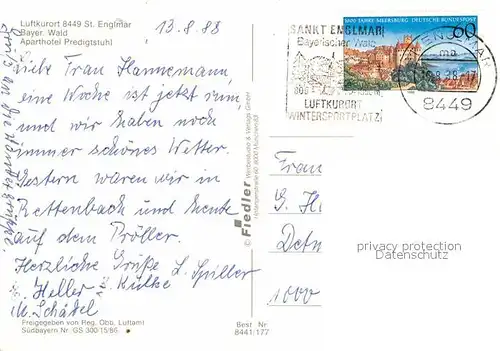 Luftkurort 8449 St. Englmar
Bayer. Wald
Aparthotel Predigtstuhl
13.8.88
Liebe Frau Hannemann,
eine Woche ist jetzt rum,
und wir haben noch
immer schönes Wetter.
Gestern waren wir in
Rettenbach und heute
auf dem Pröller.
Herzliche Grüße L. Spiller
Heller K. Kulke
M. Schädel
Gruß an die
Freigegeben von Reg. Obb. Luftamt
Südbayern Nr. GS 300/15/86
Best Nr
8441/177
© Fiedler Werbestudio & Verlags GmbH
8000 München 83
SANKT ENGLMAR
Bayerischer Wald
LUFTKURORT
WINTERSPORTPLATZ
1000 JAHRE MEERSBURG DEUTSCHE BUNDESPOST
60
ENGLMAR
ma
8.88-17
8449
Frau
G. H
Detm
1000
privacy protection
Datenschutz